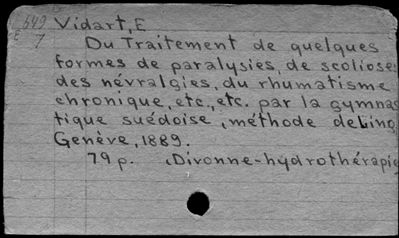 649 Vidart, E
E 7 Du Traitement de quelques
formes de paralysies, de scoliose
des névralgies, du rhumatisme
chronique, etc., etc. par la gymnas
tique suédoise, méthode de Ling
Genève, 1889.
79 p. (Divonne-hydrothérapie